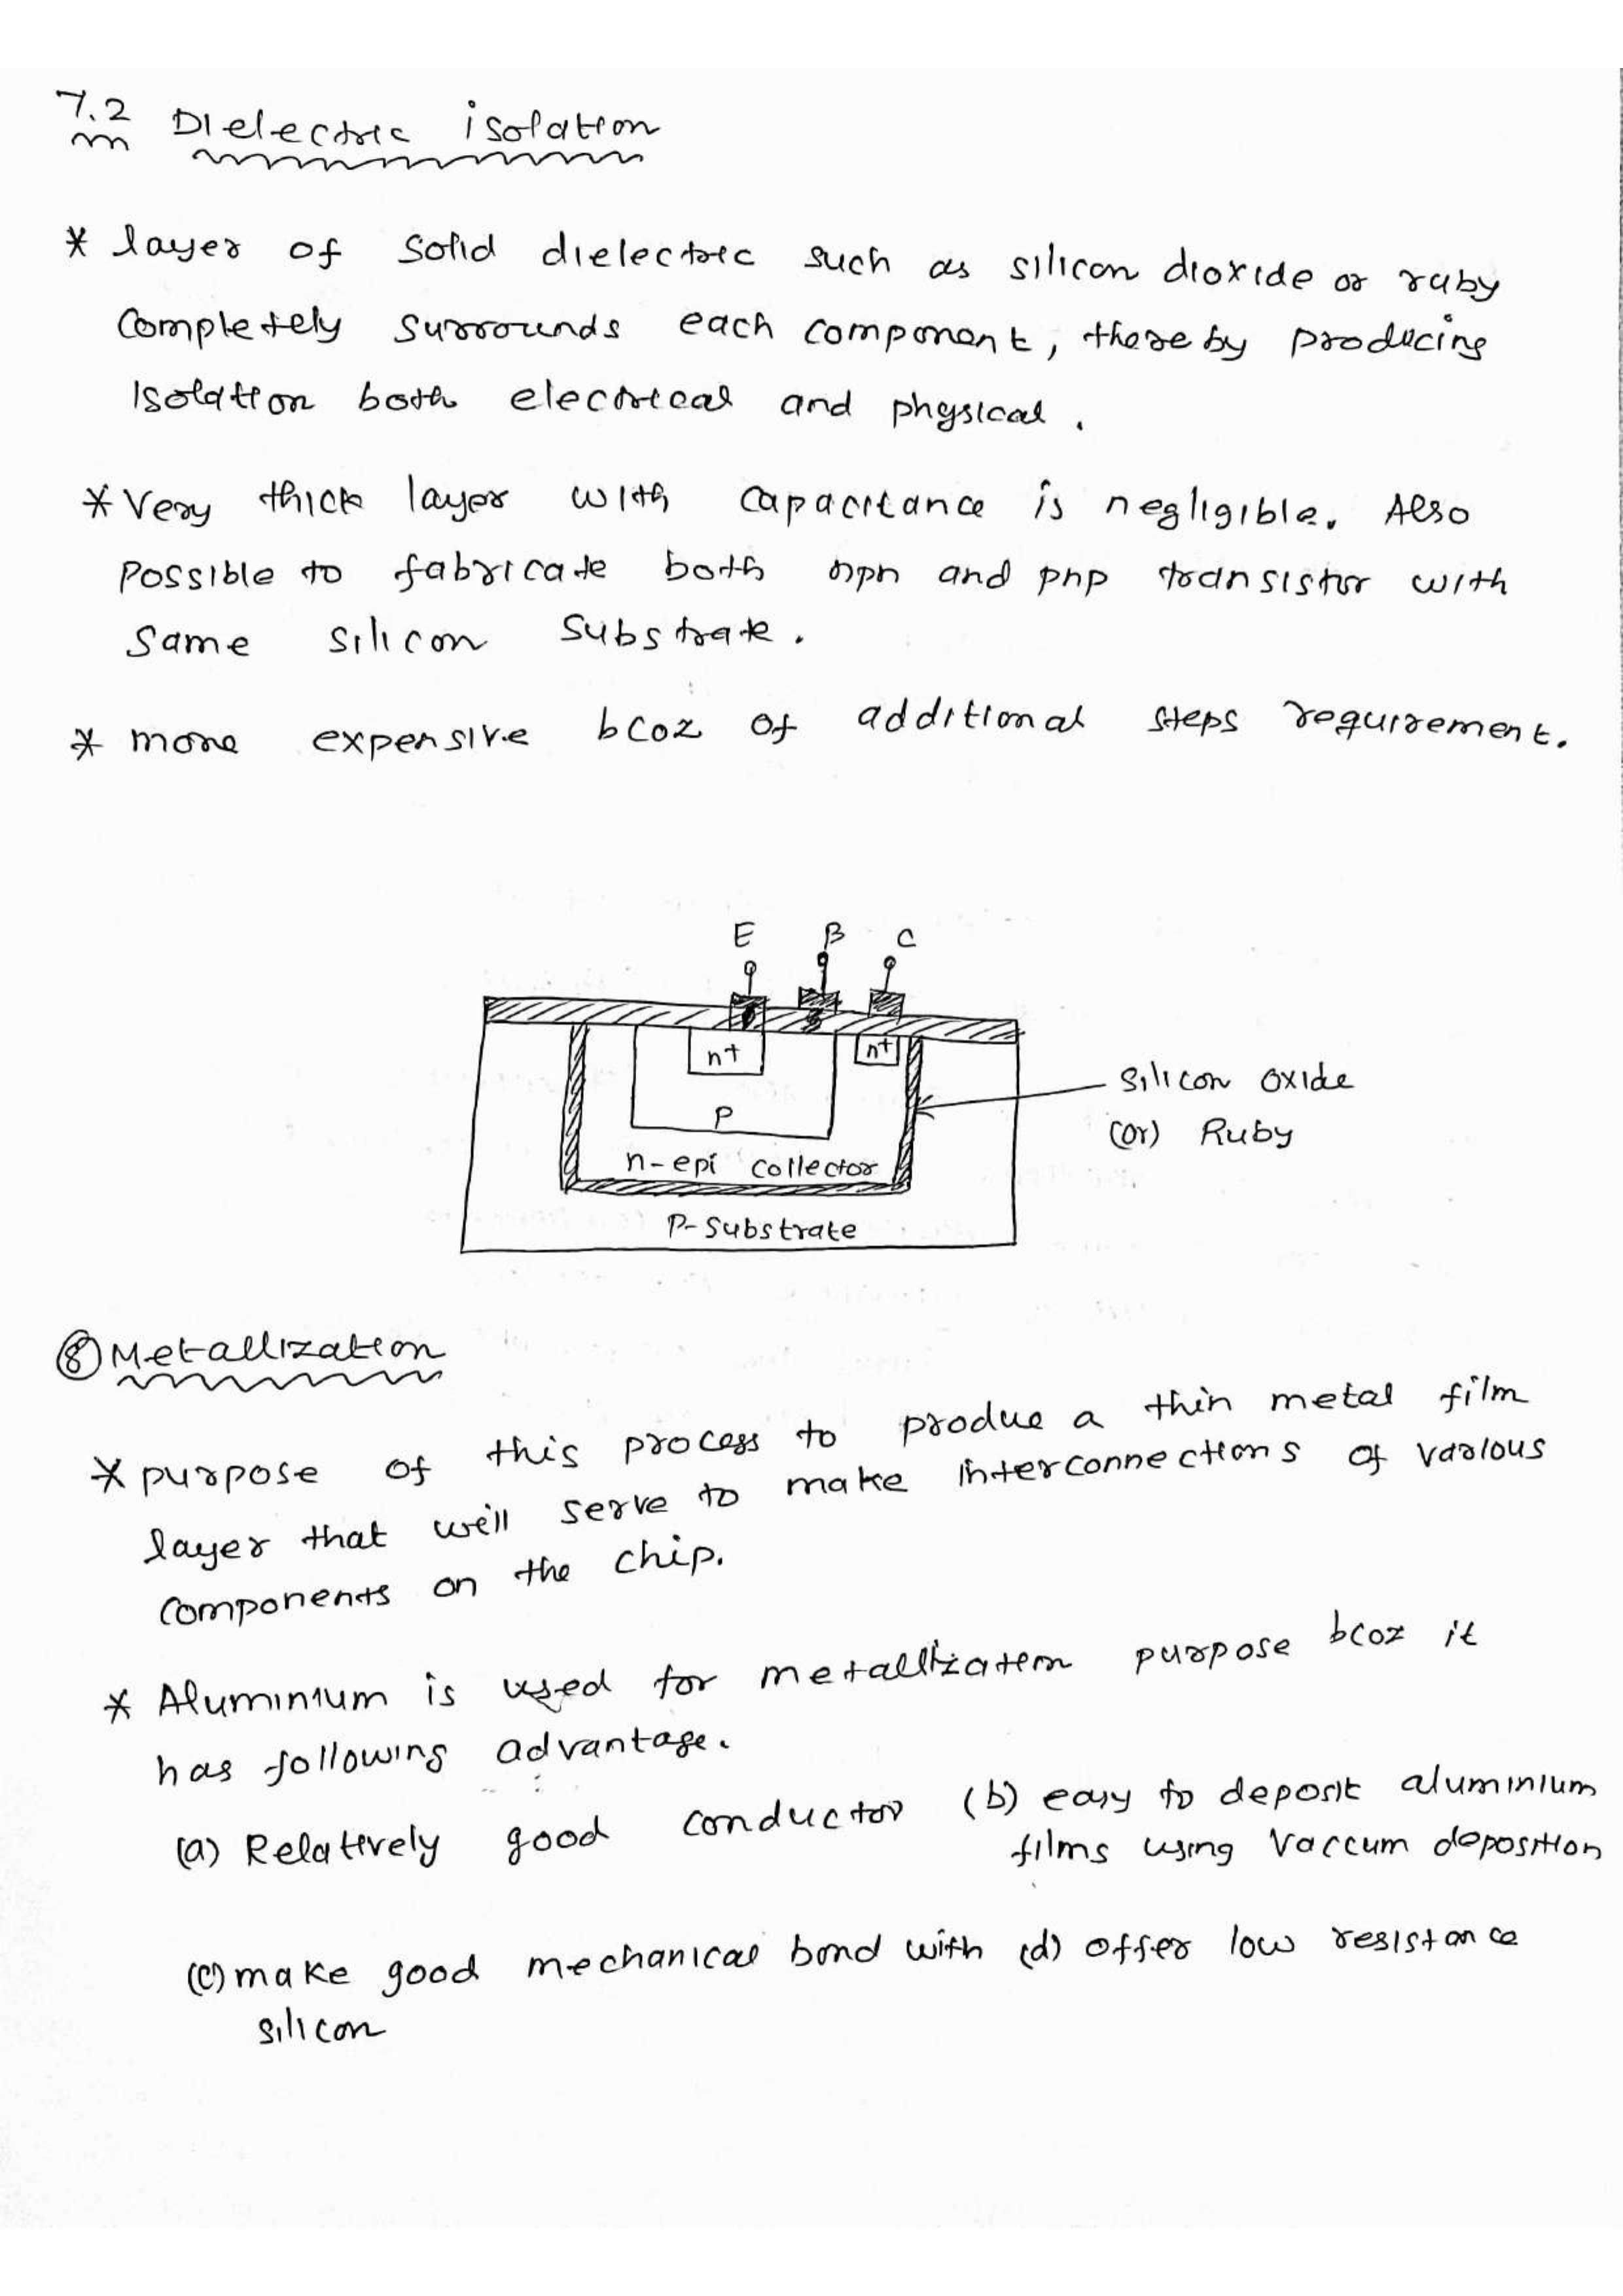 7.2 Dielectric isolation
* layer of solid dielectric such as silicon dioxide or ruby
completely surrounds each component, thereby producing
Isolation both electrical and physical.
* Very thick layer with capacitance is negligible. Also
Possible to fabricate both npn and pnp transistor with
Same silicon substrate.
* more expensive bcoz of additional steps requirement.
E B C
n+ n+
P
n-epi collector
P-Substrate
Silicon oxide
(or) Ruby
⑧ Metallization
* purpose of this process to produe a thin metal film
layer that will serve to make interconnections of various
components on the chip.
* Aluminium is used for metallization purpose bcoz it
has following advantage.
(a) Relatively good conductor (b) easy to deposit aluminium
films using Vaccum deposition
(c) make good mechanical bond with (d) offer low resistance
silicon